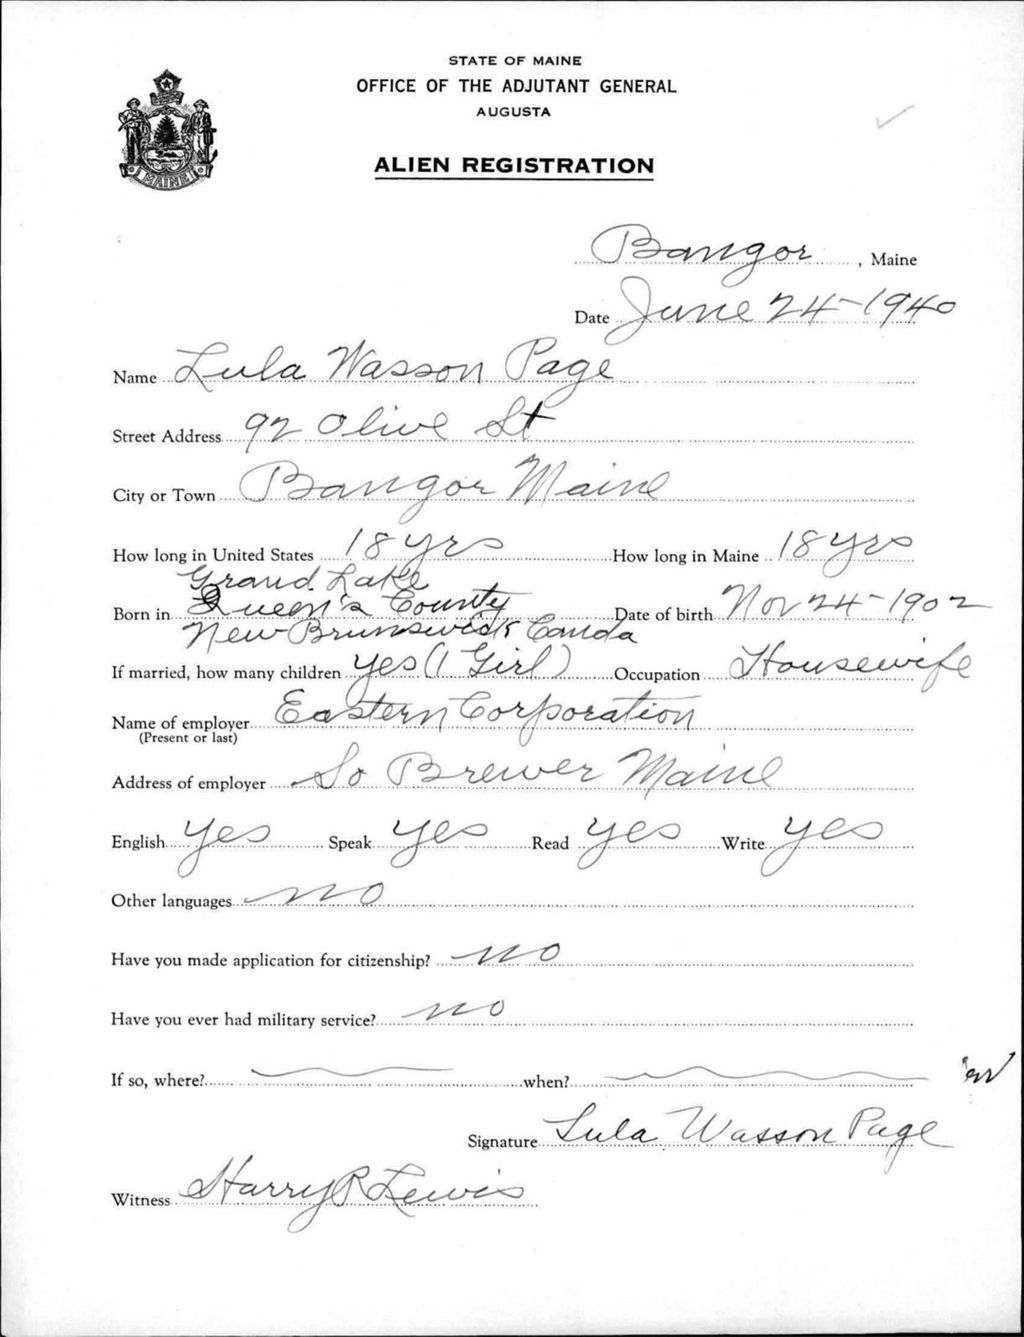 STATE OF MAINE
OFFICE OF THE ADJUTANT GENERAL
AUGUSTA
ALIEN REGISTRATION
MAINE
Bangor, Maine
Date June 24-1940
Name Lula Wasson Page
Street Address 92 Olive St
City or Town Bangor Maine
How long in United States 18 yrs How long in Maine 18 yrs
Grand Lake
Born in Queen's County Date of birth Nov 24-1902
New Brunswick Canda
If married, how many children yes (1 Girl) Occupation Housewife
Name of employer Eastern Corporation
(Present or last)
Address of employer So Brewer Maine
English yes Speak yes Read yes Write yes
Other languages no
Have you made application for citizenship? no
Have you ever had military service? no
If so, where? when?
Signature Lula Wasson Page
Witness Harry R Lewis